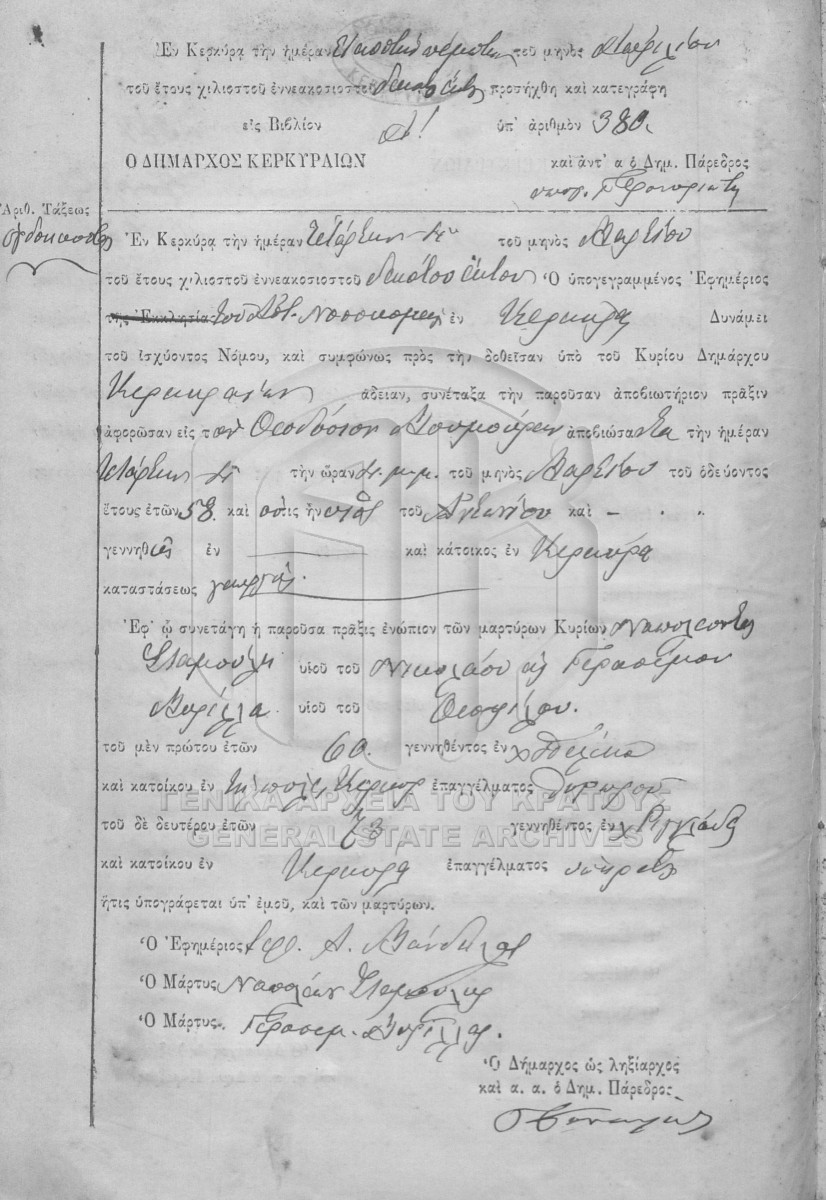 Ἐν Κερκύρᾳ τὴν ἡμέραν Εἰκοστὴν πέμπτην τοῦ μηνὸς Ἀπριλίου
τοῦ ἔτους χιλιοστοῦ ἐννεακοσιοστοῦ δεκάτου ἕκτου προσήχθη καὶ κατεγράφη
εἰς Βιβλίον Α! ὑπ' ἀριθμὸν 380
Ο ΔΗΜΑΡΧΟΣ ΚΕΡΚΥΡΑΙΩΝ καὶ ἀντ' α ὁ Δημ. Πάρεδρος
ὑπογ.
Ἀριθ. Τάξεως
Ἐν Κερκύρᾳ τὴν ἡμέραν τετάρτην 4ην τοῦ μηνὸς Μαρτίου
τοῦ ἔτους χιλιοστοῦ ἐννεακοσιοστοῦ δεκάτου ἕκτου Ὁ ὑπογεγραμμένος Ἐφημέριος
τῆς Ἐκκλησίας τοῦ Νοσοκομείου ἐν Κερκύρᾳ Δυνάμει
τοῦ ἰσχύοντος Νόμου, καὶ συμφώνως πρὸς τὴν δοθεῖσαν ὑπὸ τοῦ Κυρίου Δημάρχου
Κερκυραίων ἄδειαν, συνέταξα τὴν παροῦσαν ἀποβιωτήριον πρᾶξιν
ἀφορῶσαν εἰς τὸν Θεοδόσιον ἀποβιώσαντα τὴν ἡμέραν
τετάρτην 4ην τὴν ὥραν 4 μ.μ. τοῦ μηνὸς Μαρτίου τοῦ ὁδεύοντος
ἔτους ἐτῶν 58 καὶ ὅστις ἦν υἱὸς τοῦ Ἀντωνίου καὶ -
γεννηθεὶς ἐν καὶ κάτοικος ἐν Κερκύρᾳ
καταστάσεως γεωργὸς.
Ἐφ' ᾧ συνετάγη ἡ παροῦσα πρᾶξις ἐνώπιον τῶν μαρτύρων Κυρίων Ναπολέοντος
Σταμούλη υἱοῦ τοῦ Νικολάου καὶ Γερασίμου
υἱοῦ τοῦ Θεοφίλου.
τοῦ μὲν πρώτου ἐτῶν 60. γεννηθέντος ἐν
καὶ κατοίκου ἐν τῇ πόλει Κερκύρ ἐπαγγέλματος θυρωροῦ
τοῦ δὲ δευτέρου ἐτῶν 73 γεννηθέντος ἐν
καὶ κατοίκου ἐν Κερκύρᾳ ἐπαγγέλματος ὑπηρέτης
ἥτις ὑπογράφεται ὑπ' ἐμοῦ, καὶ τῶν μαρτύρων.
Ὁ Ἐφημέριος
Ὁ Μάρτυς Ναπολέων Σταμούλης
Ὁ Μάρτυς. Γερασιμ.
Ὁ Δήμαρχος ὡς ληξίαρχος
καὶ α. α. ὁ Δημ. Πάρεδρος
ΓΕΝΙΚΑ ΑΡΧΕΙΑ ΤΟΥ ΚΡΑΤΟΥΣ
GENERAL STATE ARCHIVES